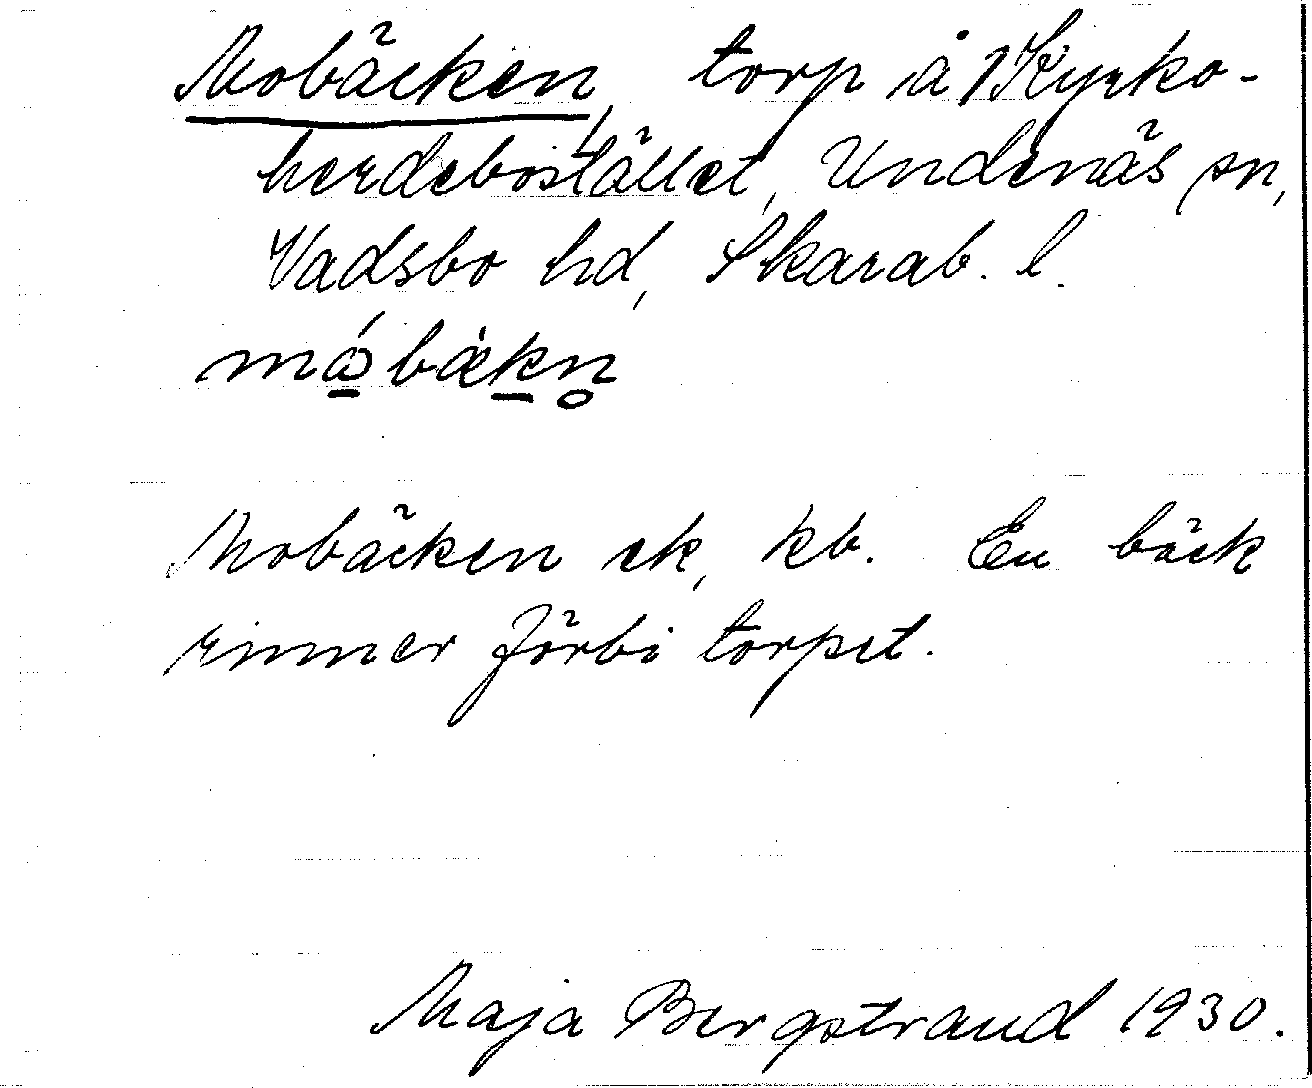 Mobäcken, torp å Kyrko-
herdebostället, Undenäs sn,
Vadsbo hd, Skarab. l.
mǻbæ̀kn̥
Mobäcken ek, kb. En bäck
rinner förbi torpet.
Maja Bergstrand 1930.